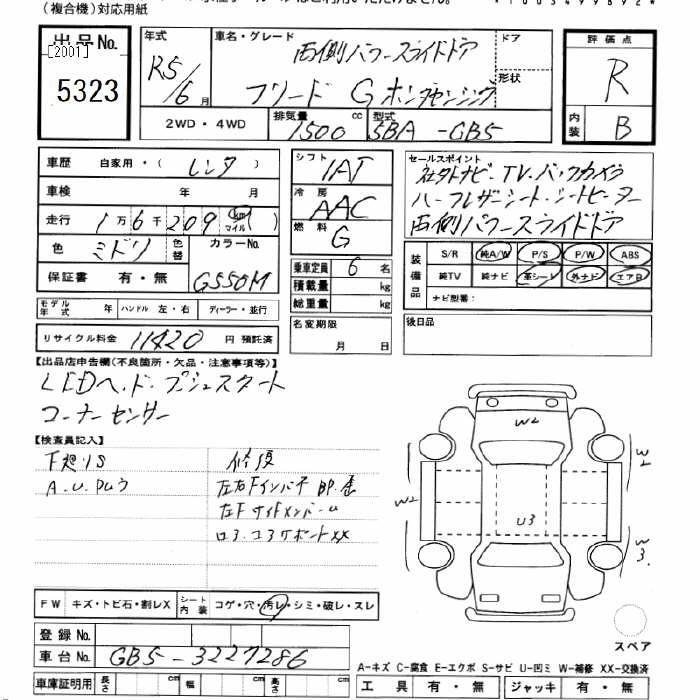 (複合機)対応用紙
*1003499892*
出品No.
[2001]
5323
年式
R5/6月
車名・グレード
両側パワースライドドア
フリード G ホンダセンシング
ドア
形状
評価点
R
内装
B
2WD・4WD
排気量
1500 cc
型式
5BA-GB5
車歴 自家用・(レンタ)
車検 年 月
走行 1万6千209 km マイル
色 ミドリ 色替 カラーNo. G550M
保証書 有・無
シフト IAT
冷房 AAC
燃料 G
乗車定員 6 名
積載量 kg
総重量 kg
セールスポイント
社外ナビ・TV・バックカメラ
ハーフレザーシート・シートヒーター
両側パワースライドドア
装備品
S/R 純A/W P/S P/W ABS
純TV 純ナビ 革シート 外ナビ エアB
ナビ型番:
モデル年式 年 ハンドル 左・右 ディーラー・並行
リサイクル料金 11420 円 預託済
名変期限
月 日
後日品
【出品店申告欄(不良箇所・欠品・注意事項等)】
LEDヘッド・プッシュスタート
コーナーセンサー
【検査員記入】
下廻りS
修復
左右Fインパネ
左Fサイドメンバー
コアサポートXX
W2
W1
W2
U3
W3
FW キズ・トビ石・割レX シート内装 コゲ・穴・汚レ・シミ・破レ・スレ
登録No.
車台No. GB5-3227286
車庫証明用 長さ cm 幅 cm 高さ cm
スペア
A-キズ C-腐食 E-エクボ S-サビ U-凹ミ W-補修 XX-交換済
工具 有・無 ジャッキ 有・無